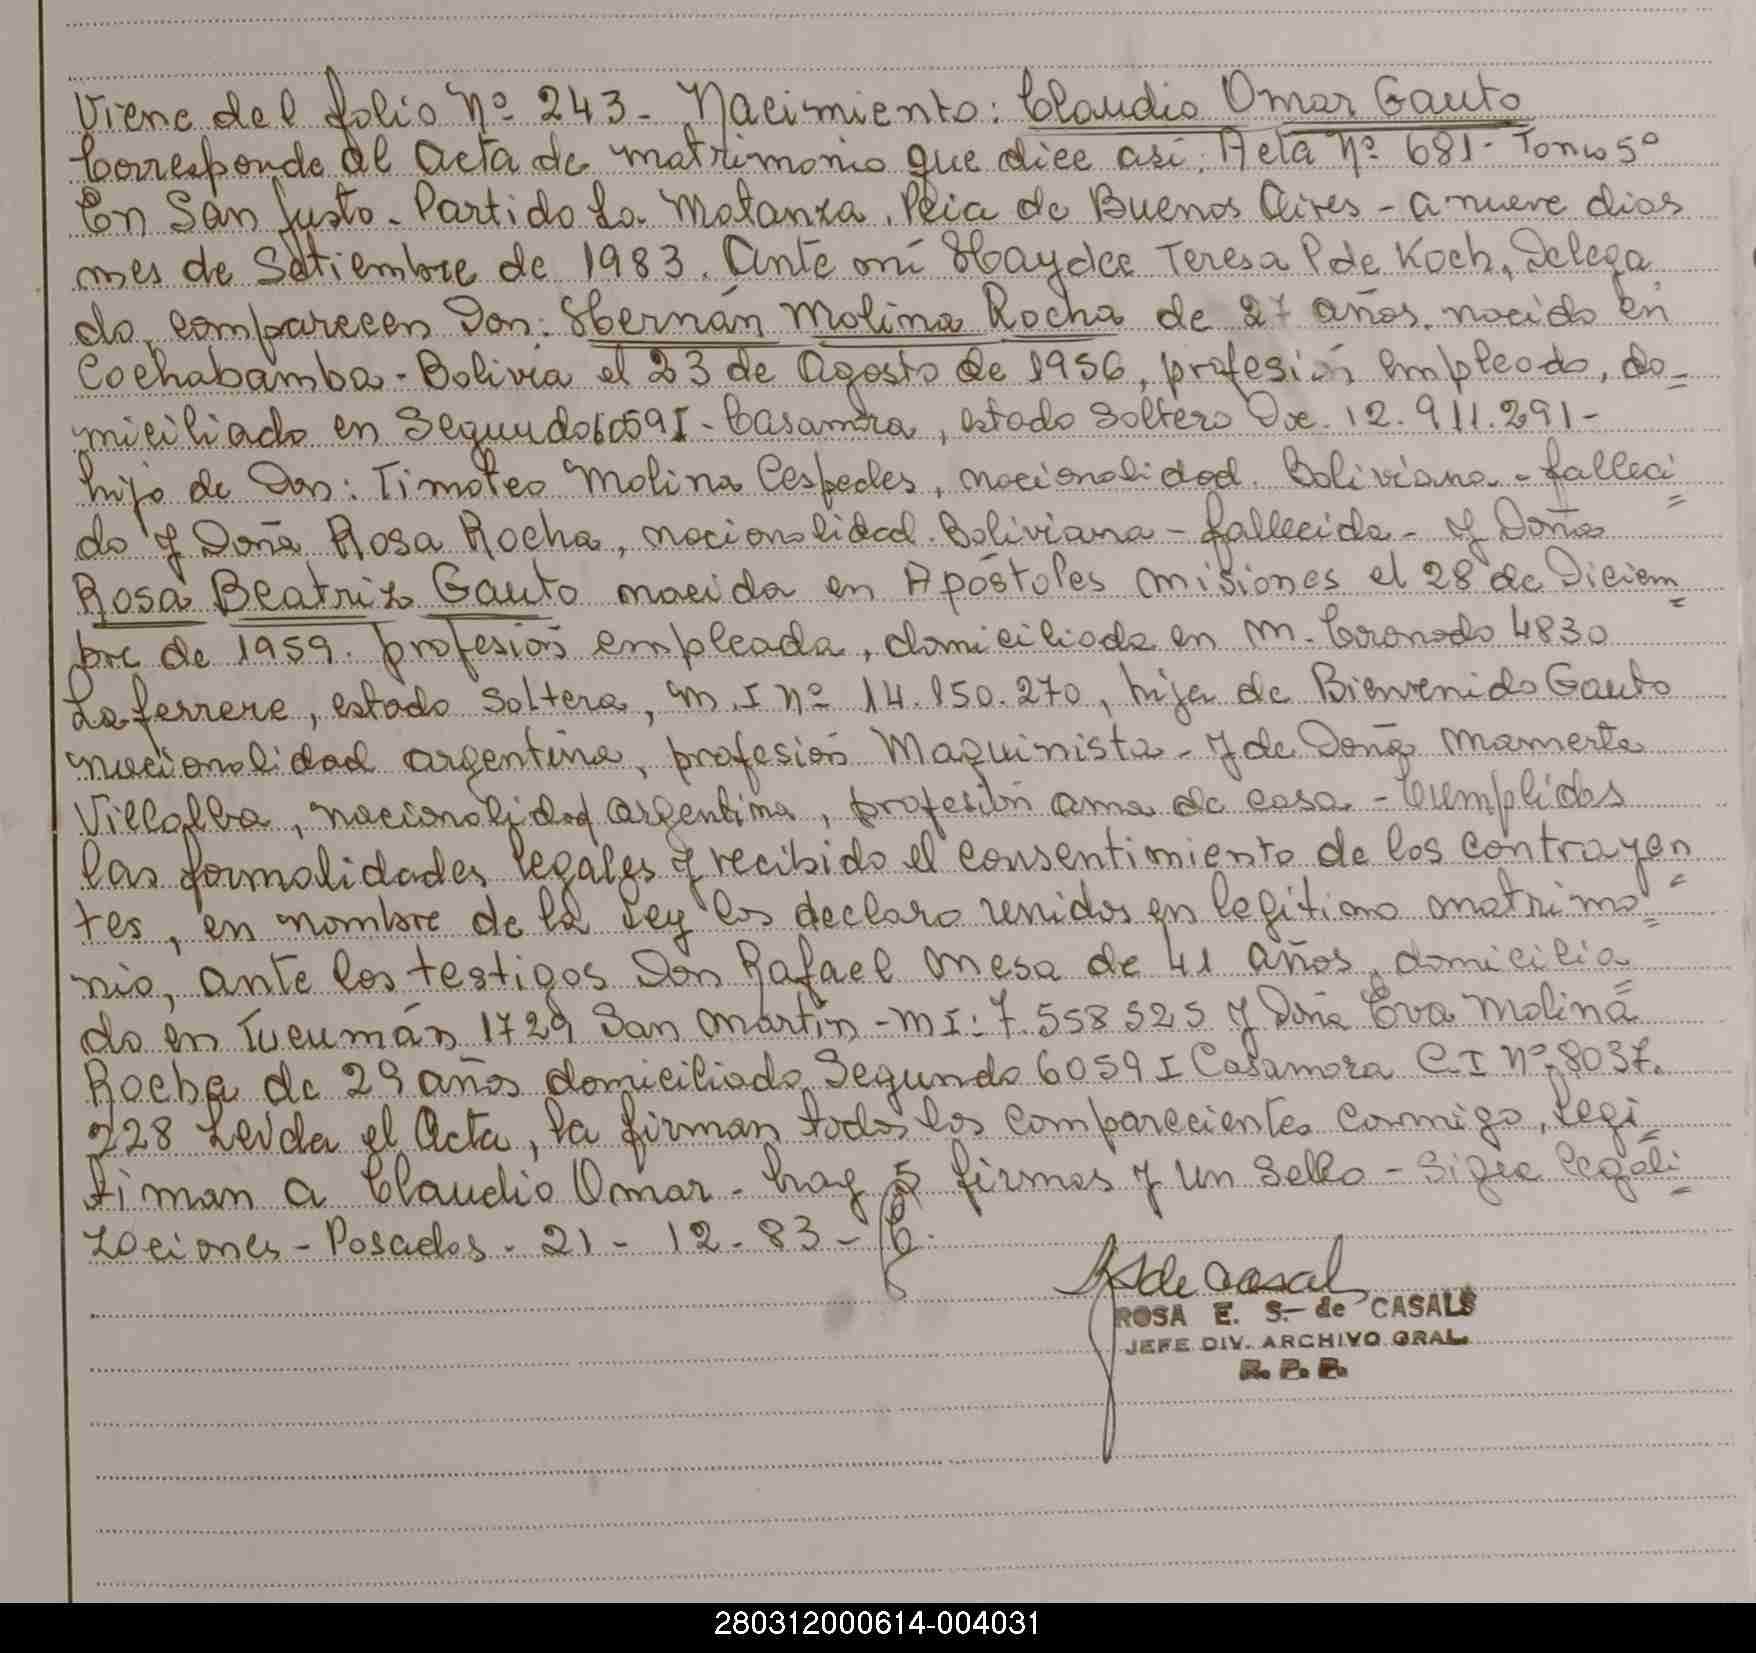 Viene del folio Nº 243 - Nacimiento: Claudio Omar Gauto
Corresponde al acta de matrimonio que dice así: Acta Nº 681 - Tomo 5º
En San Justo - Partido La Matanza. Pcia de Buenos Aires - a nueve dias
mes de Setiembre de 1983. Ante mí Haydee Teresa P de Koch, Delega
do, comparecen Don: Hernán Molina Rocha de 27 años. nacido en
Cochabamba - Bolivia el 23 de Agosto de 1956, profesión empleado, do=
miciliado en Segundo 6059 I - Casanova, estado Soltero 12.911.291 -
hijo de Don: Timoteo Molina Cespedes, nacionalidad. Boliviana - falleci=
do y Doña Rosa Rocha, nacionalidad. Boliviana - fallecida - y Doña
Rosa Beatriz Gauto nacida en Apóstoles Misiones el 28 de Diciem=
bre de 1959. profesión empleada, domiciliada en M. Coronado 4830
Laferrere, estado Soltera, M.I Nº 14.150.270, hija de Bienvenido Gauto
nacionalidad argentina, profesión Maquinista - y de Doña Mamerta
Villalba, nacionalidad argentina, profesión ama de casa - Cumplidas
las formalidades legales y recibido el consentimiento de los contrayen=
tes, en nombre de la Ley los declaro unidos en legítimo matrimo=
nio, ante los testigos Don Rafael Mesa de 41 años, domicilia=
do en Tucumán 1729 San Martín - MI: 7.558.525 y Doña Eva Molina
Rocha de 29 años domiciliado Segundo 6059 I Casanova C.I Nº 8037.
228 Leída el Acta, la firman todos los comparecientes conmigo, legi=
timan a Claudio Omar - hay 5 firmas y un Sello - Sigue legali=
zaciones - Posadas - 21 - 12 - 83 -
S de Casal
ROSA E. S. de CASALS
JEFE DIV. ARCHIVO GRAL.
R. P. P.
280312000614-004031